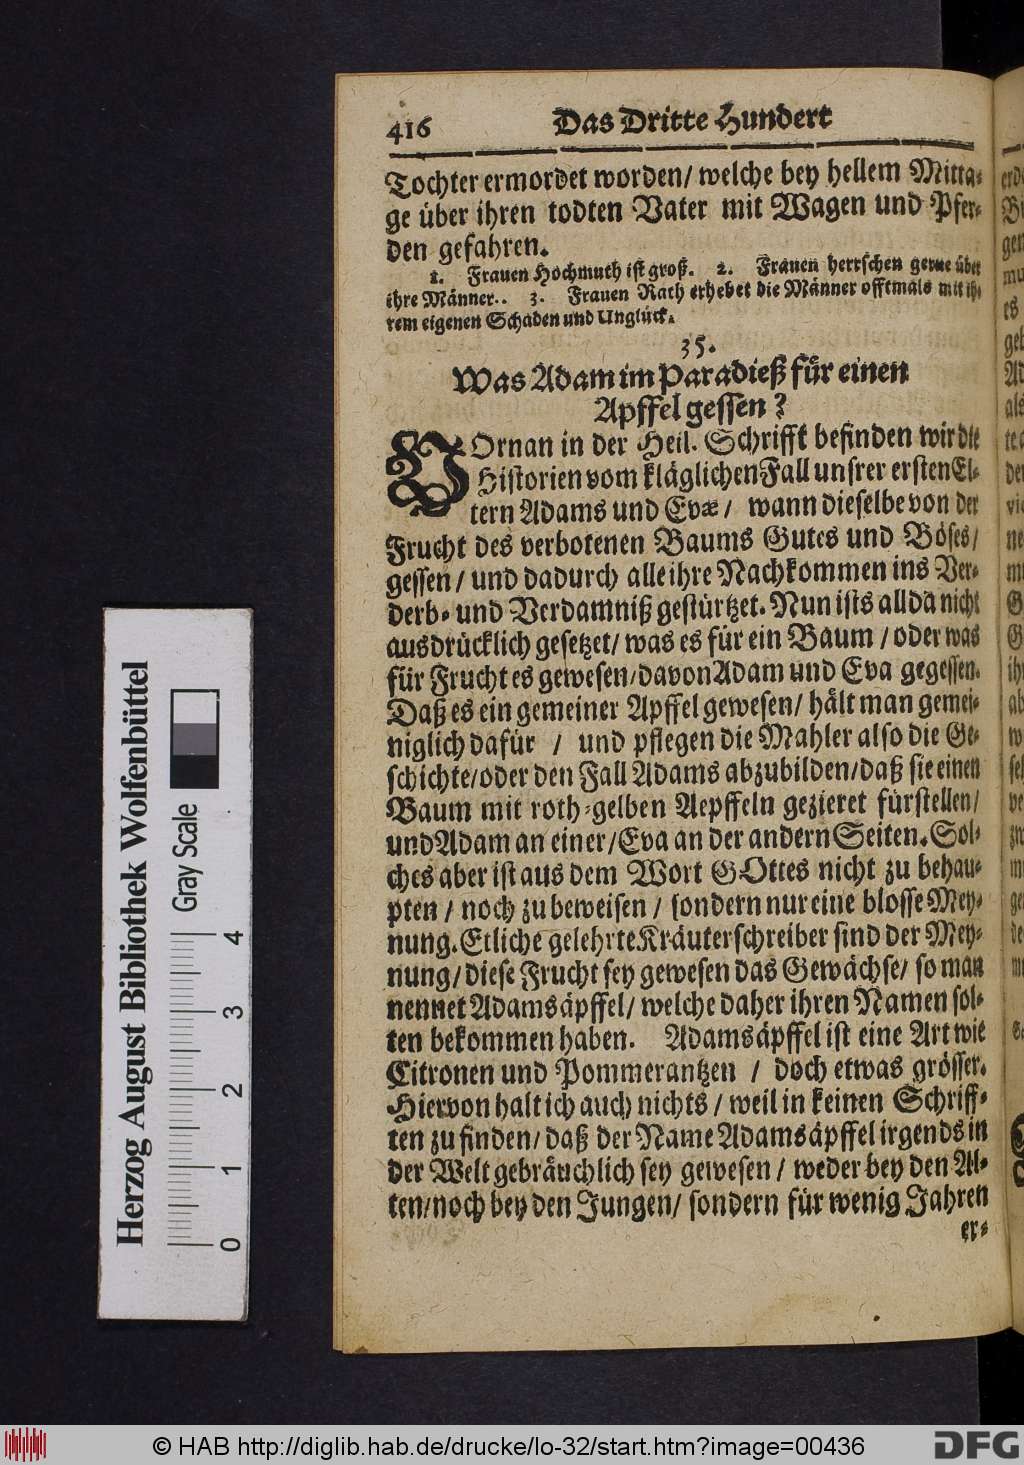 416 Das Dritte Hundert
Tochter ermordet worden/ welche bey hellem Mitta-
ge über ihren todten Vater mit Wagen und Pfer-
den gefahren.
1. Frauen Hochmuth ist groß. 2. Frauen herrschen gerne über
ihre Männer.. 3. Frauen Rath erhebet die Männer offtmals mit ih-
rem eigenen Schaden und Unglück.
35.
Was Adam im Paradieß für einen
Apffel gessen?
VOrnan in der Heil. Schrifft befinden wir die
Historien vom kläglichen Fall unsrer ersten El-
tern Adams und Evæ/ wann dieselbe von der
Frucht des verbotenen Baums Gutes und Böses/
gessen/ und dadurch alle ihre Nachkommen ins Ver-
derb- und Verdamniß gestürtzet. Nun ists allda nicht
ausdrücklich gesetzet/ was es für ein Baum/ oder was
für Frucht es gewesen/ davon Adam und Eva gegessen.
Daß es ein gemeiner Apffel gewesen/ hält man gemei-
niglich dafür / und pflegen die Mahler also die Ge-
schichte/ oder den Fall Adams abzubilden/ daß sie einen
Baum mit roth-gelben Aepffeln gezieret fürstellen/
und Adam an einer/ Eva an der andern Seiten. Sol-
ches aber ist aus dem Wort GOttes nicht zu behau-
pten / noch zu beweisen / sondern nur eine blosse Mey-
nung. Etliche gelehrte Kräuterschreiber sind der Mey-
nung/ diese Frucht sey gewesen das Gewächse/ so man
nennet Adamsäpffel/ welche daher ihren Namen sol-
ten bekommen haben. Adamsäpffel ist eine Art wie
Citronen und Pommerantzen / doch etwas grösser.
Hiervon halt ich auch nichts / weil in keinen Schriff-
ten zu finden/ daß der Name Adamsäpffel irgends in
der Welt gebräuchlich sey gewesen / weder bey den Al-
ten/ noch bey den Jungen/ sondern für wenig Jahren
er-
Herzog August Bibliothek Wolfenbüttel
Gray Scale
0 1 2 3 4
© HAB http://diglib.hab.de/drucke/lo-32/start.htm?image=00436
DFG